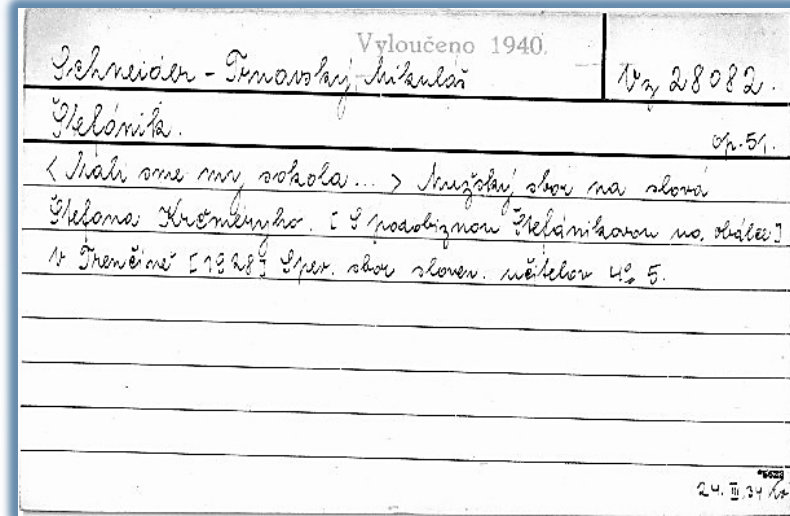 Vyloučeno 1940.
Schneider-Trnavský, Mikuláš
Vz 28082.
Štefánik.
op. 51.
< Mali sme my sokola... > Mužský sbor na slová
Štefana Krčméryho. [S podobiznou Štefánikovou na obálce]
V Trenčíně [1928] Spev. sbor sloven. učitelov 4° 5.
24. III. 34